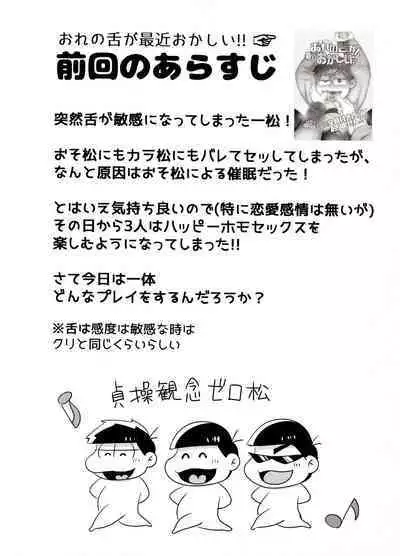 おれの舌が最近おかしい!!
前回のあらすじ
突然舌が敏感になってしまった一松!
おそ松にもカラ松にもバレてセッしてしまったが、
なんと原因はおそ松による催眠だった!
とはいえ気持ち良いので(特に恋愛感情は無いが)
その日から3人はハッピーホモセックスを
楽しむようになってしまった!!
さて今日は一体
どんなプレイをするんだろうか?
※舌は感度は敏感な時は
クリと同じくらいらしい
貞操観念ゼロ松